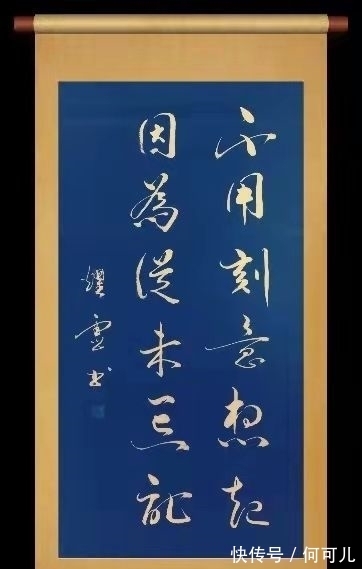 不用刻意想起
因為從未忘記
書
快传号 / 何可儿